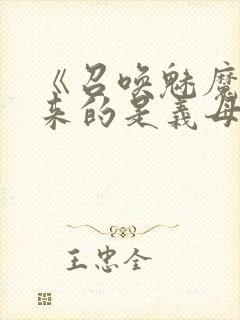 《召唤魅魔
来的是义母
王忠全